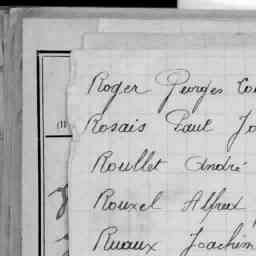 Roger Georges
Rosais Paul
Roullet André
Rouxel Alfred
Ruaux Joachim